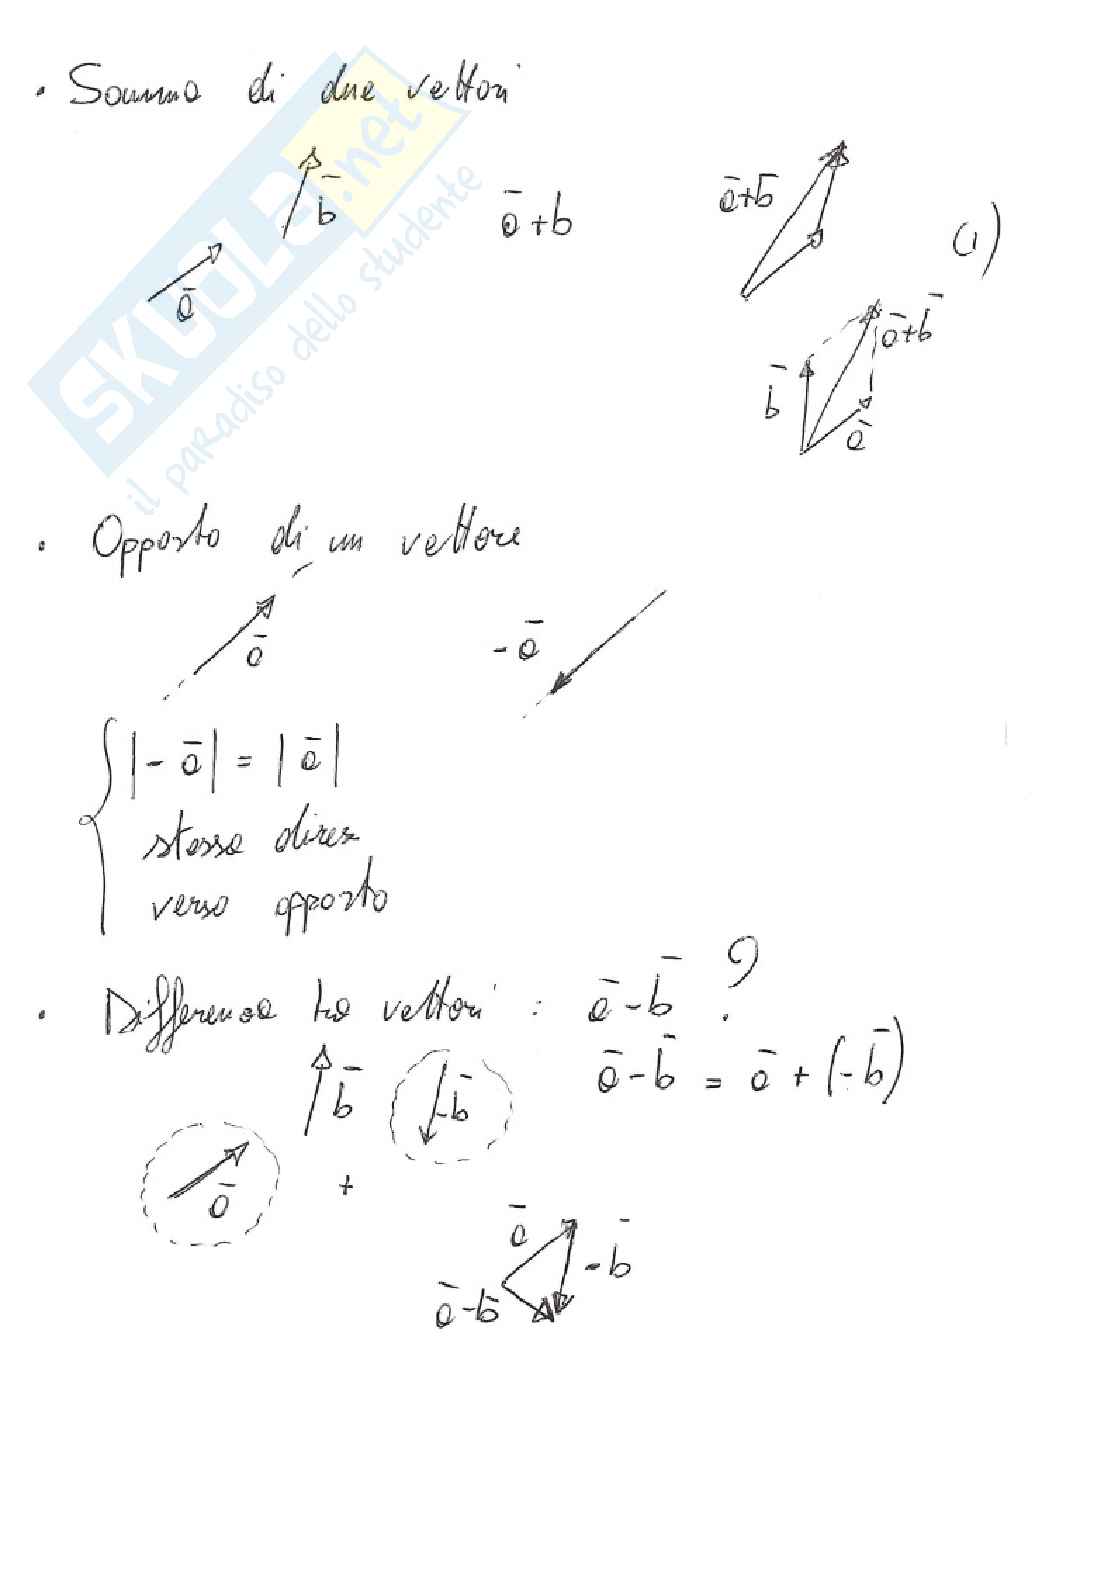 • Somma di due vettori
b̄
ā
ā+b
ā+b̄
(1)
ā+b̄
b̄
ā
SKUOLA.net
il paradiso dello studente
• Opposto di un vettore
ā
-ā
|-ā| = |ā|
stessa direz
verso opposto
• Differenza tra vettori : ā-b̄ ?
ā-b̄ = ā+(-b̄)
b̄
-b̄
ā
+
ā
-b̄
ā-b̄